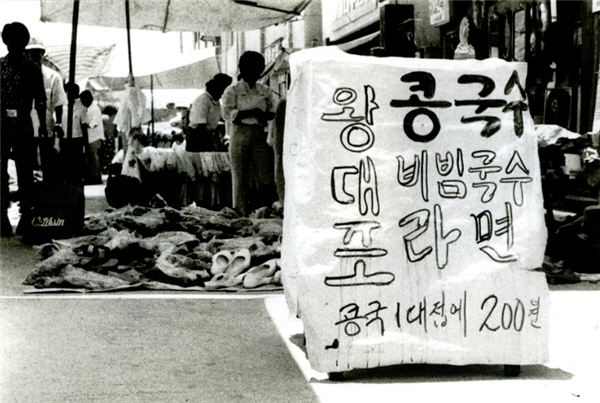 왕대포
콩국수
비빔국수
라면
콩국 1대접에 200원